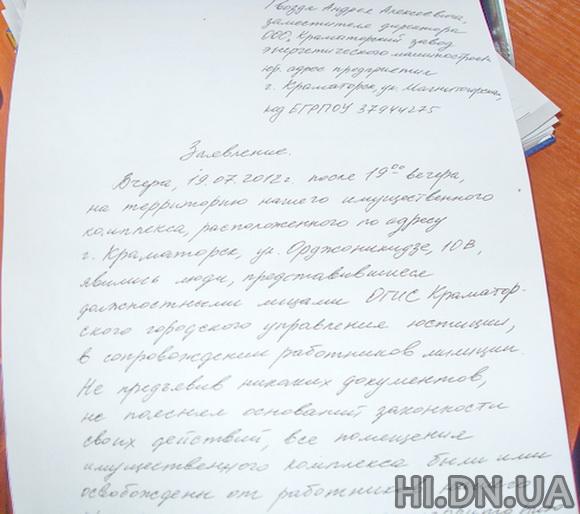 Гвоздя Андрея Алексеевича,
заместителя директора
ООО "Краматорский завод
энергетического машиностроен
юр. адрес предприятия
г. Краматорск, ул. Магнитогорская,
код ЕГРПОУ 37944275
Заявление.
Вчера, 19.07.2012 г. после 19 00 вечера,
на территорию нашего имущественного
комплекса, расположенного по адресу
г. Краматорск, ул. Орджоникидзе, 10 В,
явились люди, представившиеся
должностными лицами ОГИС Краматор-
ского городского управления юстиции,
в сопровождении работников милиции.
Не предъявив никаких документов,
не поясняя оснований законности
своих действий, все помещения
имущественного комплекса были ими
освобождены от работников
HI.DN.UA